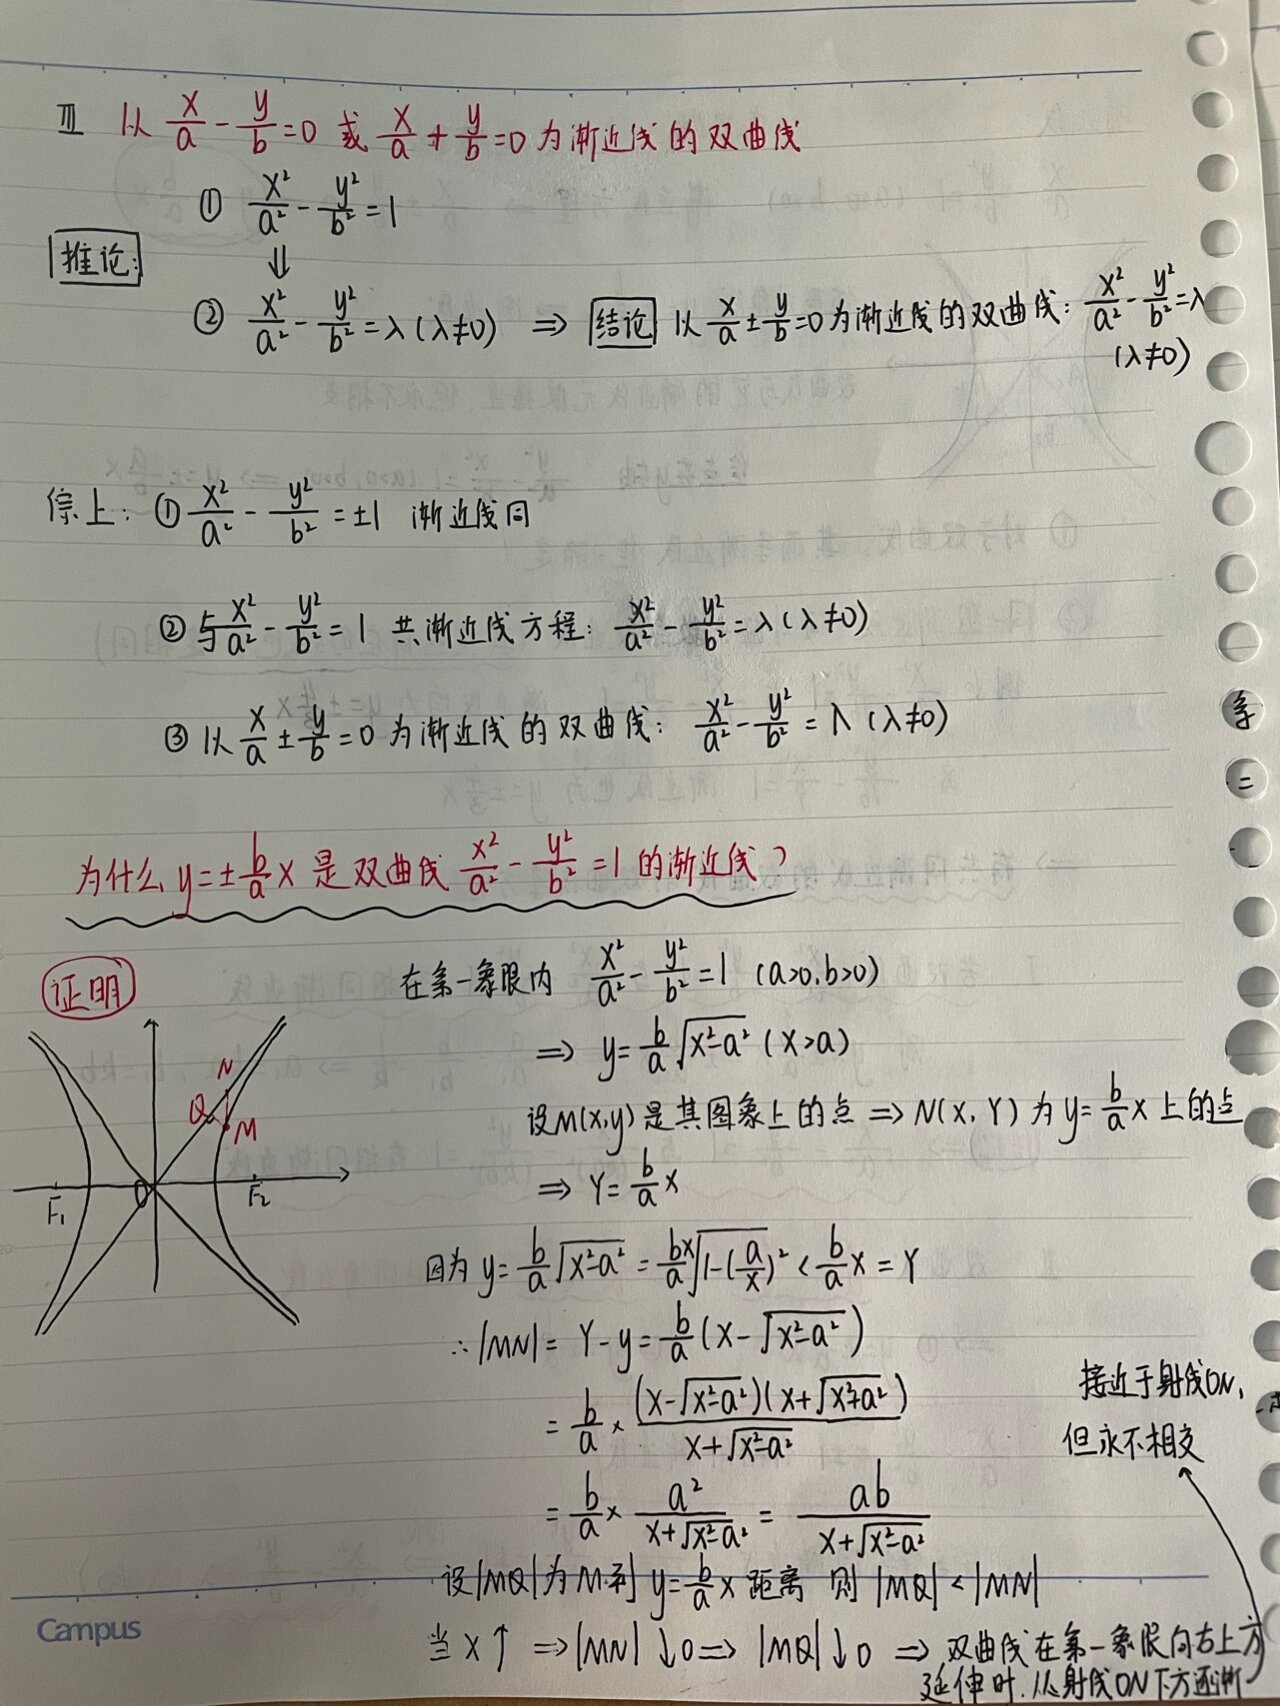 Ⅲ 以 x/a - y/b = 0 或 x/a + y/b = 0 为渐近线的双曲线
① x²/a² - y²/b² = 1
推论:
⇓
② x²/a² - y²/b² = λ (λ≠0) ⇒ 结论 以 x/a ± y/b = 0 为渐近线的双曲线: x²/a² - y²/b² = λ
(λ≠0)
综上: ① x²/a² - y²/b² = ±1 渐近线同
② 与 x²/a² - y²/b² = 1 共渐近线方程: x²/a² - y²/b² = λ (λ≠0)
③ 以 x/a ± y/b = 0 为渐近线的双曲线: x²/a² - y²/b² = λ (λ≠0)
为什么 y = ± b/a x 是双曲线 x²/a² - y²/b² = 1 的渐近线?
证明
在第一象限内 x²/a² - y²/b² = 1 (a>0, b>0)
⇒ y = b/a √(x²-a²) (x>a)
N
Q
M
O
F₁
F₂
设M(x,y)是其图象上的点 ⇒ N(x, Y) 为 y = b/a x 上的点
⇒ Y = b/a x
因为 y = b/a √(x²-a²) = bx/a √(1-(a/x)²) < b/a x = Y
∴ |MN| = Y - y = b/a (x - √(x²-a²))
= b/a × (x-√(x²-a²))(x+√(x²+a²)) / (x+√(x²-a²))
= b/a × a²/(x+√(x²-a²)) = ab/(x+√(x²-a²))
设|MQ|为M到 y = b/a x 距离 则 |MQ| < |MN|
当 x↑ ⇒ |MN| ↓0 ⇒ |MQ| ↓0 ⇒ 双曲线在第一象限向右上方
延伸时,从射线ON下方逐渐
接近于射线ON,
但永不相交
Campus